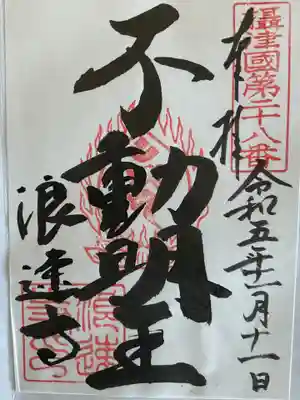 攝津國第二十八番
奉拝
令和五年一月十一日
不動明王
浪速寺